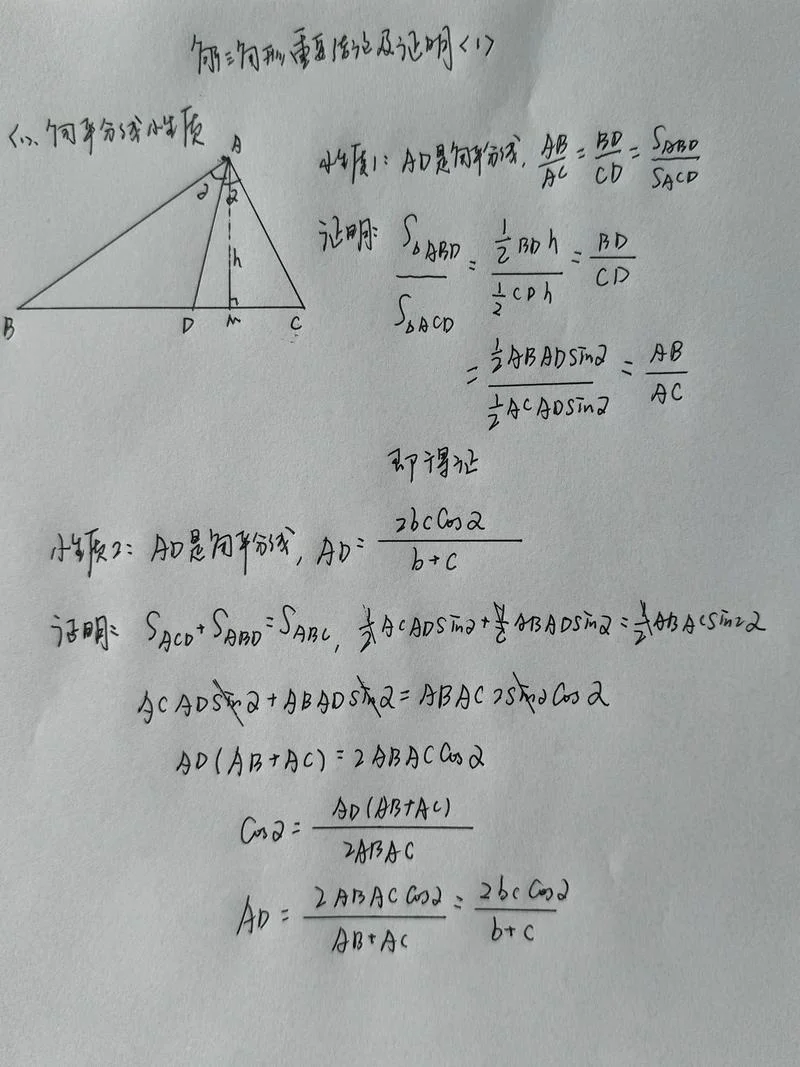 解三角形重要结论及证明<1>
<1>、角平分线性质
A
α α
h
B D M C
性质1: AD是角平分线, AB/AC = BD/CD = S_ABD/S_ACD
证明: S_△ABD/S_△ACD = (1/2 BD h)/(1/2 CD h) = BD/CD
= (1/2 AB AD sinα)/(1/2 AC AD sinα) = AB/AC
即得证
性质2: AD是角平分线, AD = 2bc Cosα/(b+c)
证明: S_ACD + S_ABD = S_ABC, 1/2 AC AD sinα + 1/2 AB AD sinα = 1/2 AB AC sin2α
AC AD sinα + AB AD sinα = AB AC 2sinα Cosα
AD(AB+AC) = 2AB AC Cosα
Cosα = AD(AB+AC)/(2AB AC)
AD = 2AB AC Cosα/(AB+AC) = 2bc Cosα/(b+c)